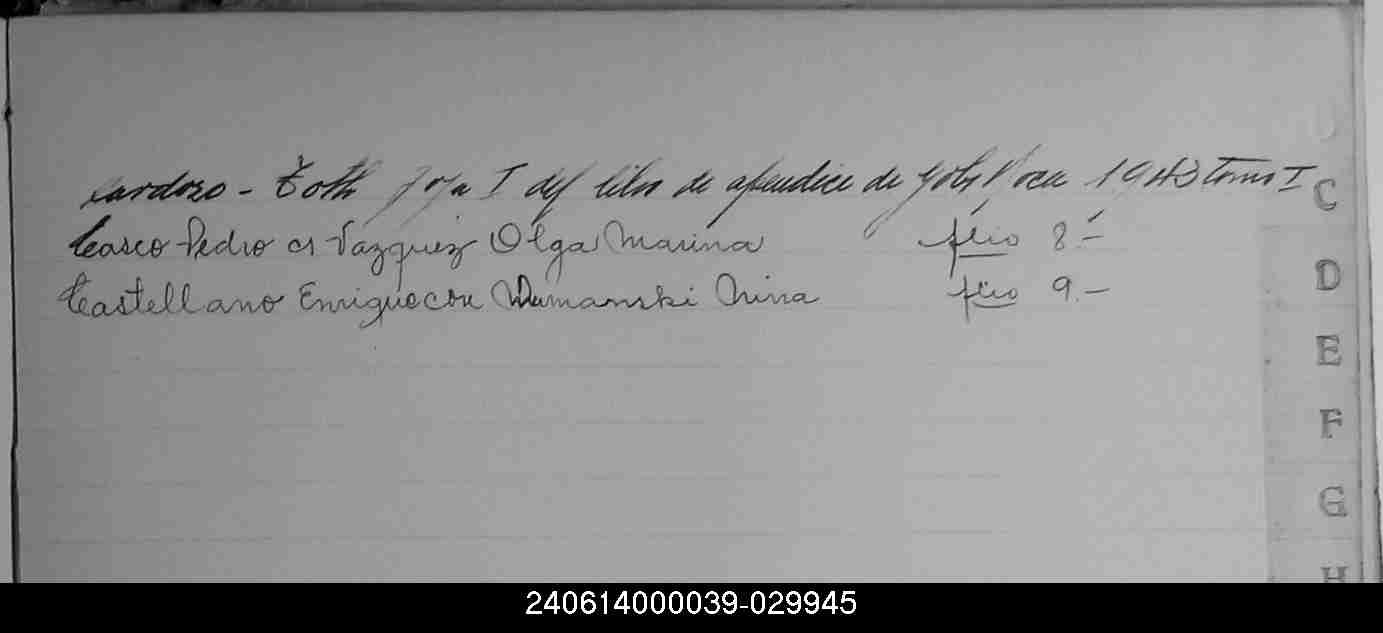 Cardozo - Toth foja I del libro de apendice de 1943 tomo I
Casco Pedro cs Vazquez Olga Marina flio 8.-
Castellano Enrique con Numanski Nina flio 9.-
C
D
E
F
G
H
240614000039-029945